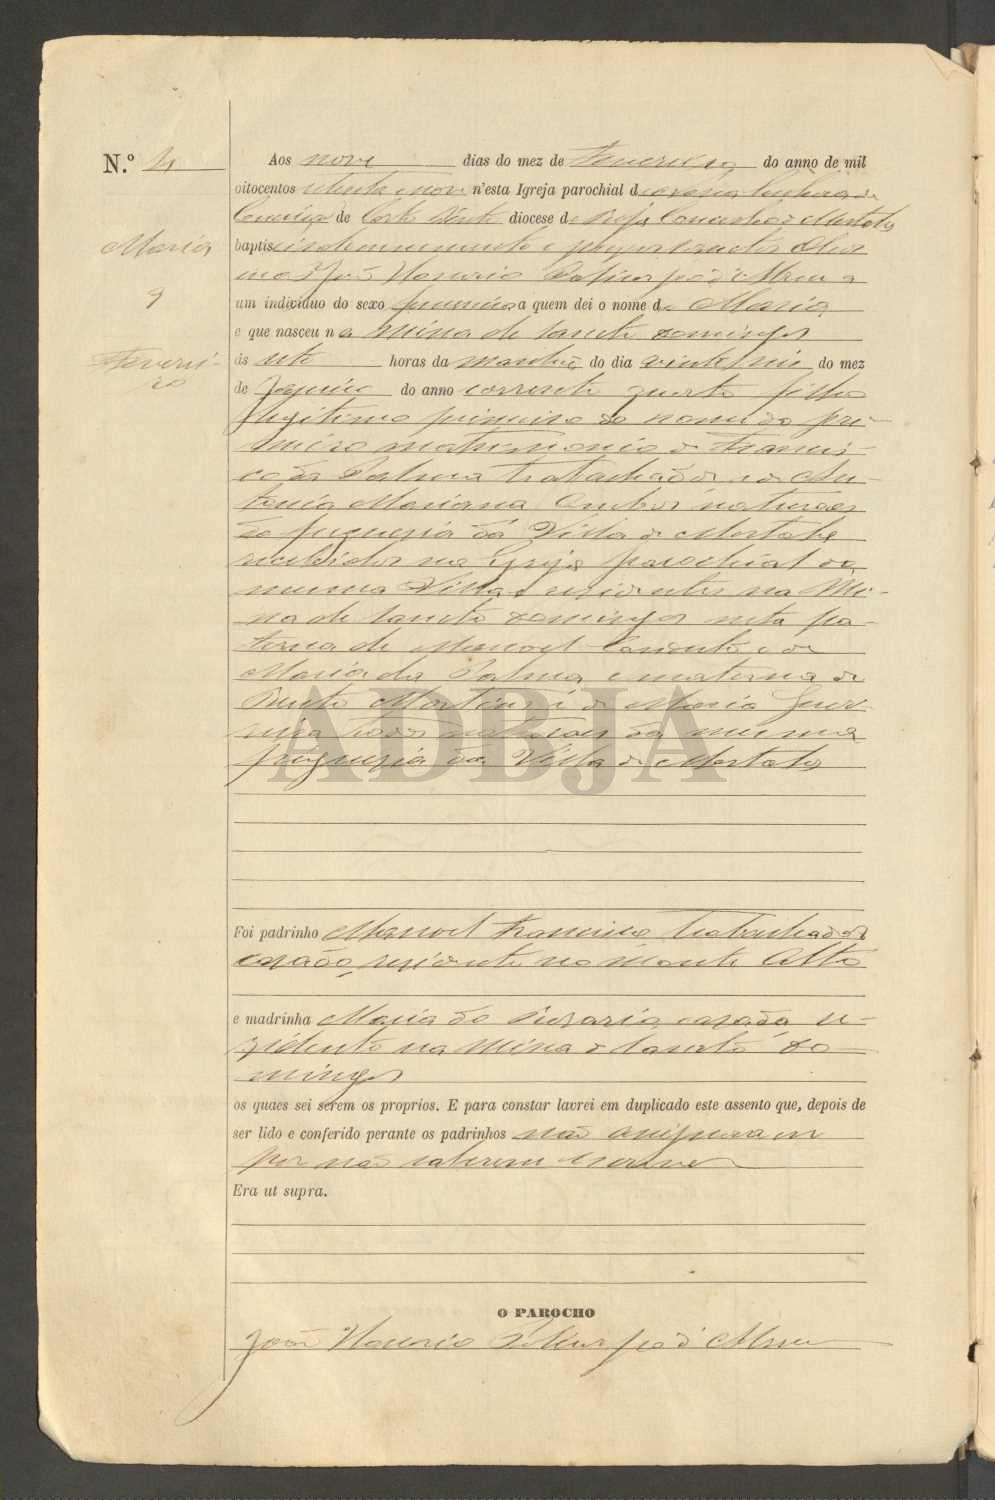 N.º 4
Aos nove dias do mez de Fevereiro do anno de mil
oitocentos oitenta e nove n'esta Igreja parochial de Nossa Senhora da
Conceição de Corte do Pinto diocese de Beja Concelho de Mertola
Maria
baptisei solemnemente e puz os Santos Oleos
João Honorio
9
um individuo do sexo feminino a quem dei o nome de Maria
e que nasceu na Mina de Sancto Domingos
Feverei-
ro
ás sete horas da manhã do dia do mez
de Janeiro do anno corrente quarta filha
legitima primeira do nome do pri-
meiro matrimonio de Francis-
co da Palma trabalhador e de An-
tonia Mariana ambos naturaes
da freguezia da Villa de Mertola
recebidos na Igreja parochial da
mesma Villa e residentes na Mi-
na de Sancto Domingos neta pa-
terna de Manoel e de
Maria da Palma e materna de
Bento Martins e de Maria Guer-
reira todos naturaes da mesma
freguezia da Villa de Mertola
ADBJA
Foi padrinho Manoel Francisco trabalhador
casado, residente no Monte Alto
e madrinha Maria do Rozario, casada re-
zidente na Mina de Sancto Do-
mingos
os quaes sei serem os proprios. E para constar lavrei em duplicado este assento que, depois de
ser lido e conferido perante os padrinhos não assignaram
por não saberem escrever
Era ut supra.
O PAROCHO
João Honorio